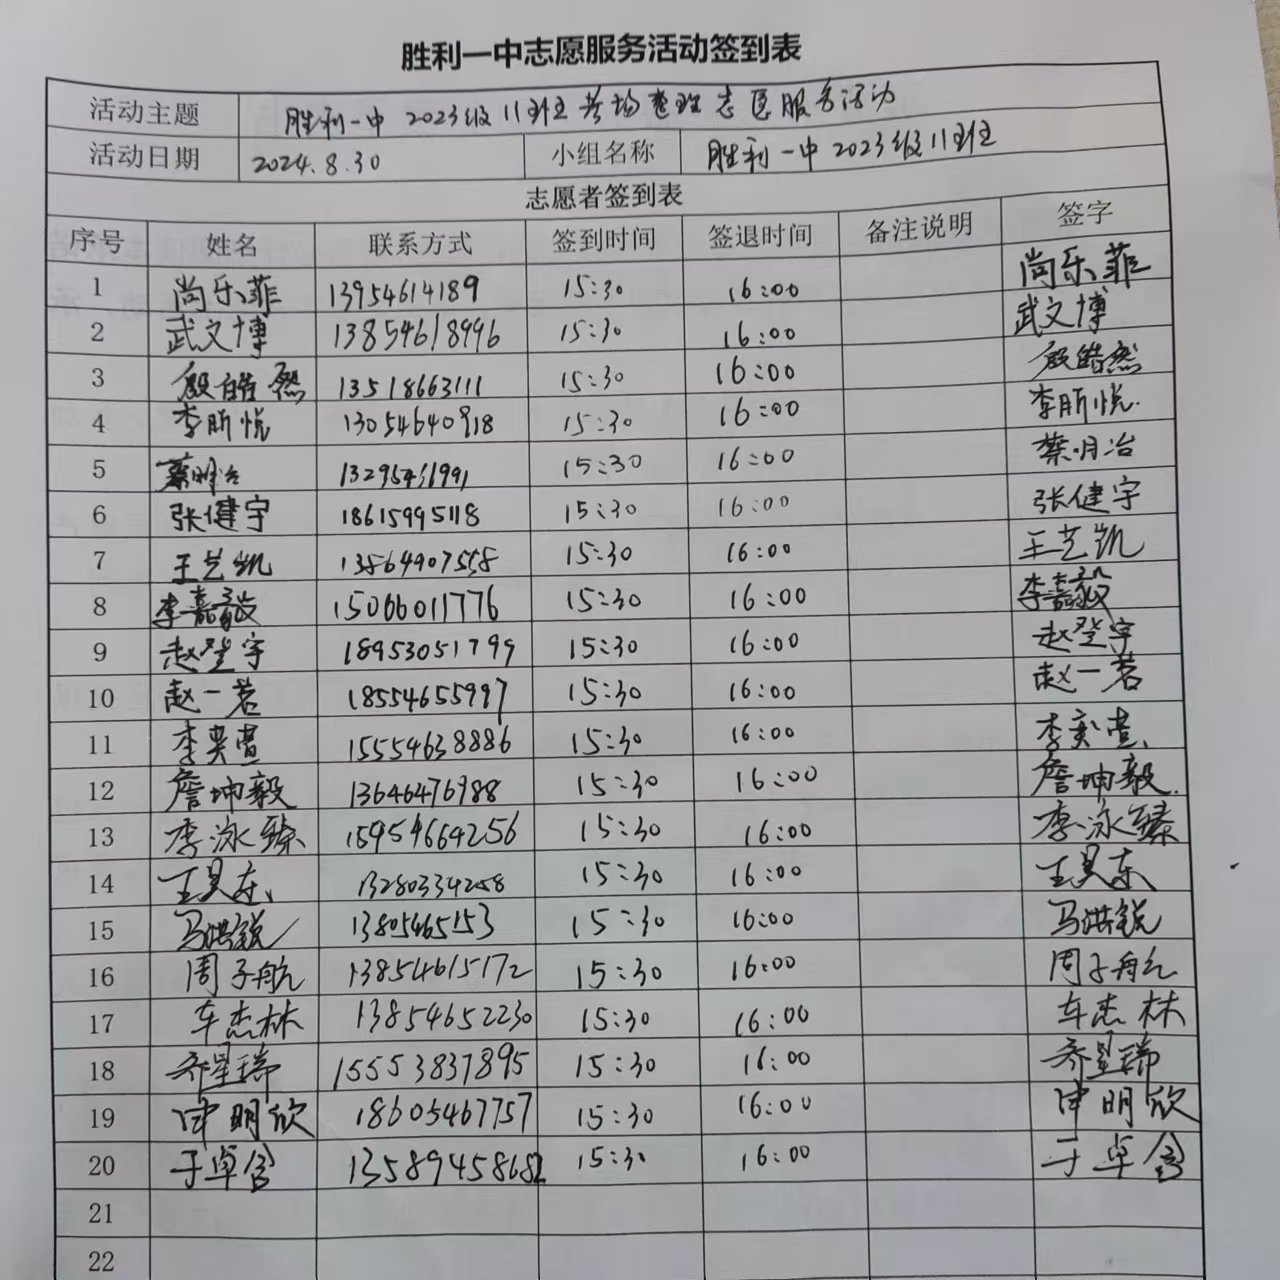 胜利一中志愿服务活动签到表
活动主题 胜利一中2023级11班考场整理志愿服务活动
活动日期 2024.8.30 小组名称 胜利一中2023级11班
志愿者签到表
序号 姓名 联系方式 签到时间 签退时间 备注说明 签字
1 尚乐菲 13954614189 15:30 16:00 尚乐菲
2 武文博 13854618996 15:30 16:00 武文博
3 殷皓然 13518663111 15:30 16:00 殷皓然
4 李昕悦 13054640918 15:30 16:00 李昕悦
5 蔡明治 15:30 16:00 蔡明治
6 张健宇 18615995118 15:30 16:00 张健宇
7 王艺凯 13864907558 15:30 16:00 王艺凯
8 李嘉毅 15066011776 15:30 16:00 李嘉毅
9 赵登宇 18953051799 15:30 16:00 赵登宇
10 赵一茗 18554655997 15:30 16:00 赵一茗
11 李奕萱 15554638886 15:30 16:00 李奕萱
12 詹坤毅 13646476988 15:30 16:00 詹坤毅
13 李泳臻 15954664256 15:30 16:00 李泳臻
14 王昊东 13280334258 15:30 16:00 王昊东
15 马洪锐 13805465153 15:30 16:00 马洪锐
16 周子航 13854615172 15:30 16:00 周子航
17 车杰林 13854652230 15:30 16:00 车杰林
18 乔星瑞 15553837895 15:30 16:00 乔星瑞
19 申明欣 18605467757 15:30 16:00 申明欣
20 于卓含 13589458682 15:30 16:00 于卓含
21
22